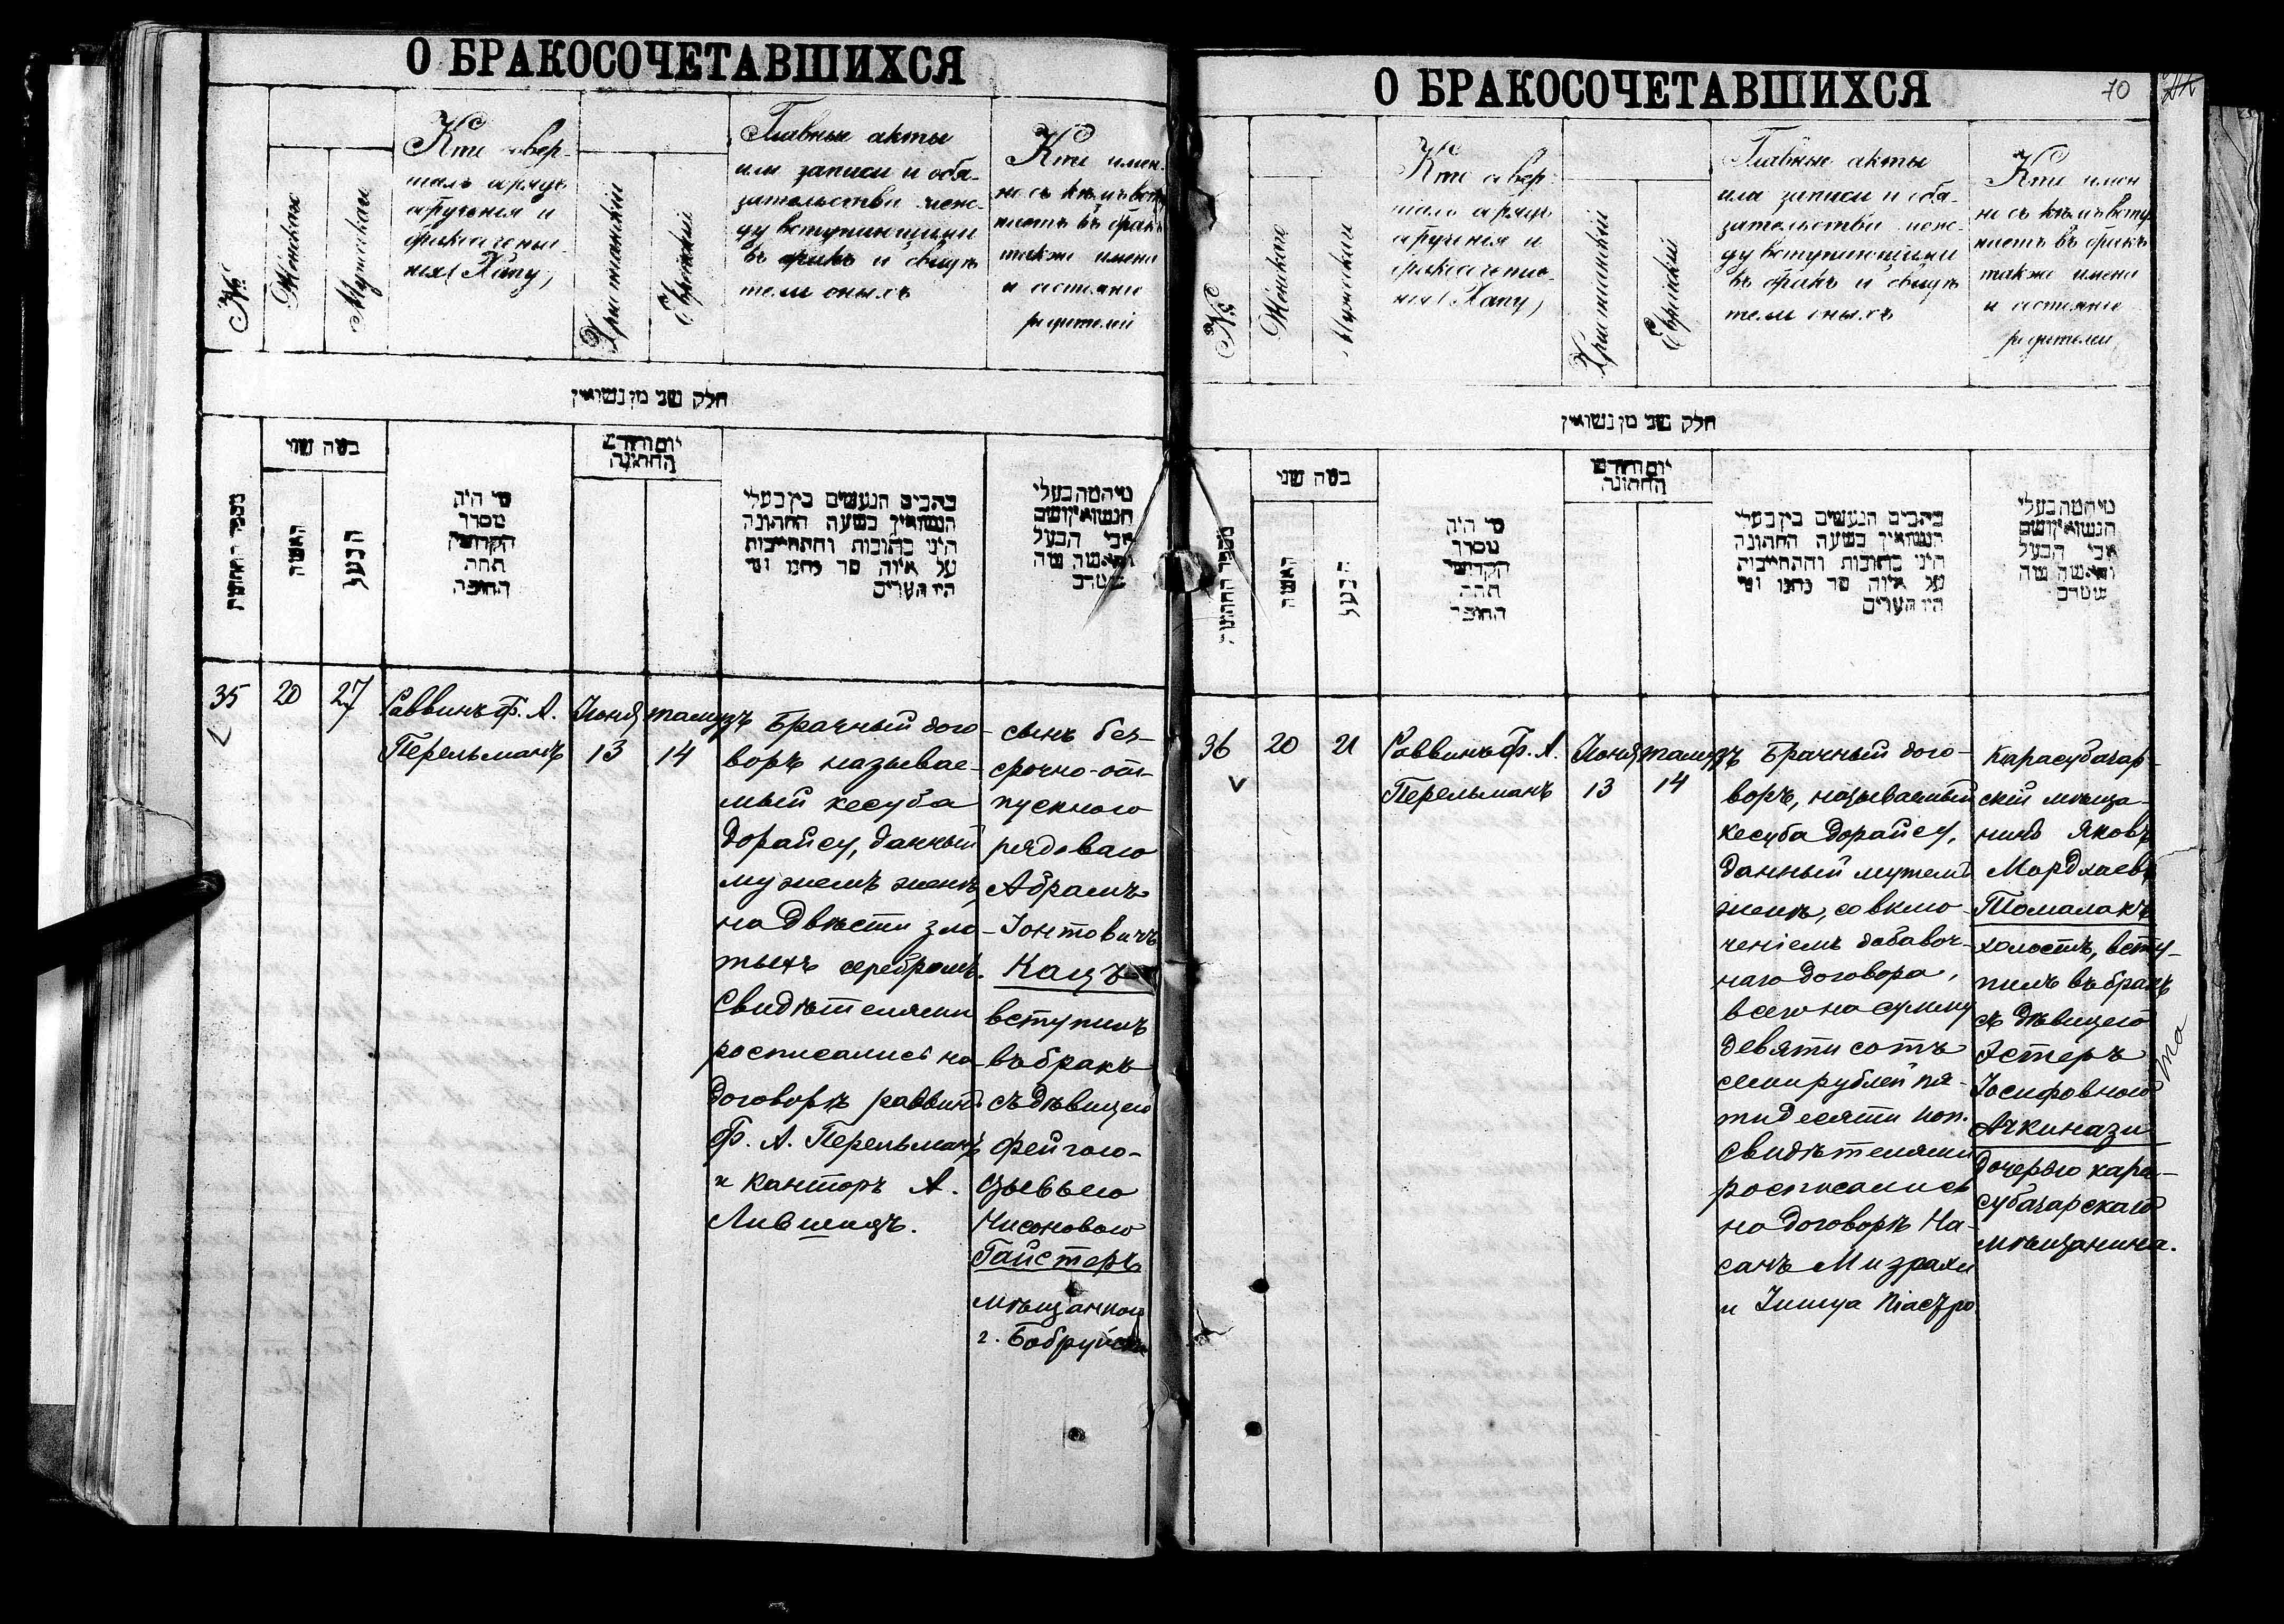 О БРАКОСОЧЕТАВШИХСЯ
№
Женская
Мужская
Кто совер-
шалъ обрядъ
обрученія и
бракосочета-
нія (Хапу)
Христіанскій
Еврейскій
Главные акты
или записи и обя-
зательства меж-
ду вступающими
въ бракъ и свидѣ
тели оныхъ
Кто имен-
но съ кѣмъ всту
паетъ въ бракъ
также имена
и состояніе
родителей
חלק שני מן נשואין
מספר החתונות
כמה שני
האשה
הבעל
מי היה
מסדר
הקדושין
תחת
החופה
יום וחודש
החתונה
כתבים הנעשים בין בעלי
הנשואין בשעה החתונה
היינו כתובות והתחייבות
על איזה סך נתנו ומי
היו העדים
מי המה בעלי
הנשואין ושם
אבי הבעל
והאשה מה
מעמדם
35
20
27
Раввинъ Ф. А.
Перельманъ
Іюня
13
тамузъ
14
Брачный дого-
воръ называе-
мый кесуба
дорайсу, данный
мужемъ женѣ
на двѣсти зло-
тыхъ серебромъ.
Свидѣтелями
росписались на
договорѣ раввинъ
Ф. А. Перельманъ
и канторъ А.
Лившицъ.
сынъ без-
срочно-от-
пускного
рядоваго
Абрамъ
Іонтовичъ
Кацъ
вступилъ
въ бракъ
съ дѣвицею
Фейгою-
Цывьею
Нисоновою
Гайстеръ
мѣщанкою
г. Бобруйска
О БРАКОСОЧЕТАВШИХСЯ
70
№
Женская
Мужская
Кто совер-
шалъ обрядъ
обрученія и
бракосочета-
нія (Хапу)
Христіанскій
Еврейскій
Главные акты
или записи и обя-
зательства меж-
ду вступающими
въ бракъ и свидѣ
тели оныхъ
Кто имен
но съ кѣмъ всту
паетъ въ бракъ
также имена
и состояніе
родителей
חלק שני מן נשואין
מספר החתונות
כמה שני
האשה
הבעל
מי היה
מסדר
הקדושין
תחת
החופה
יום וחודש
החתונה
כתבים הנעשים בין בעלי
הנשואין בשעה החתונה
היינו כתובות והתחייבות
על איזה סך נתנו ומי
היו העדים
מי המה בעלי
הנשואין ושם
אבי הבעל
והאשה מה
מעמדם
36
20
21
Раввинъ Ф. А.
Перельманъ
Іюня
13
тамузъ
14
Брачный дого-
воръ, называемый
кесуба дорайсу,
данный мужемъ
женѣ, со вклю-
ченіемъ добавоч-
наго договора,
всего на сумму
девяти сотъ
семи рублей пя-
тидесяти коп.
Свидѣтелями
росписались
на договорѣ На-
санъ Мизрахи
и Ішуа Піастро
Карасубазар-
скій мѣща-
нинъ Яковъ
Мордхаевъ
Томалакъ
холостъ, всту-
пилъ въ бракъ
съ дѣвицею
Эстеръ
Іосифовною
Ачкинази
дочерью кара-
субазарскаго
мѣщанина.